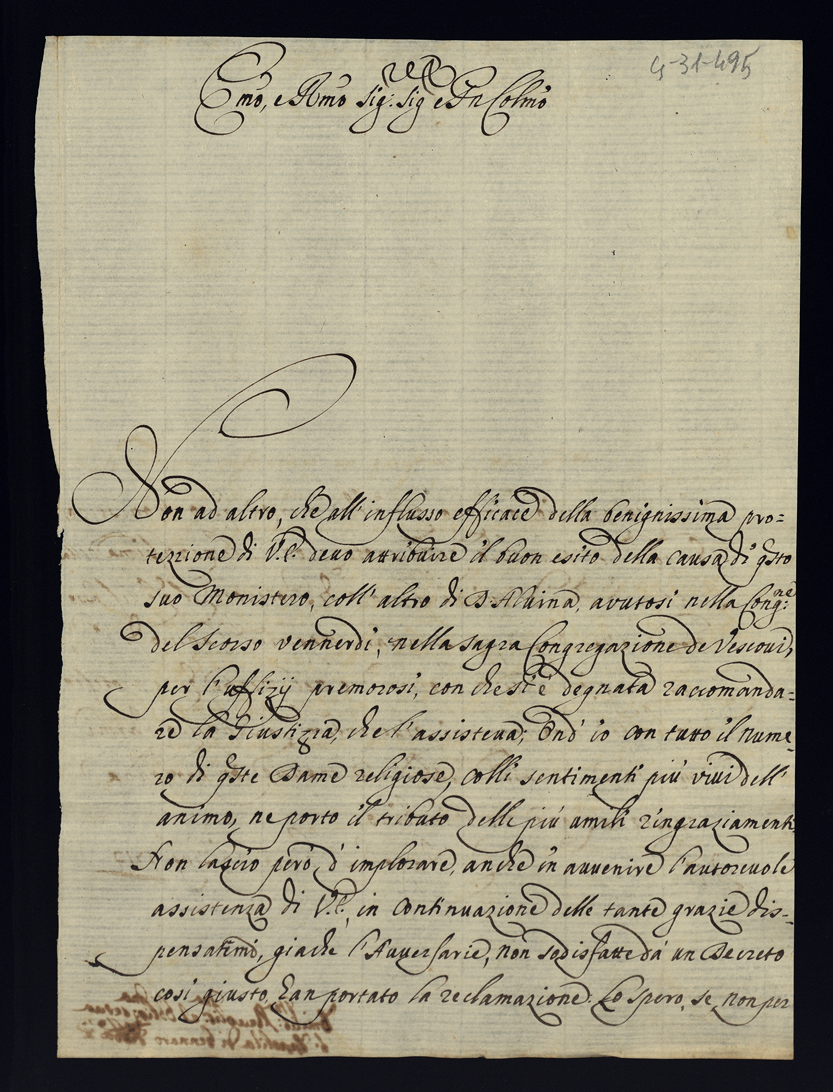 4-31-495
Emo, e Rmo Sig: Sig e Pn Colmo
Non ad altro, che all'influsso efficace della benignissima pro=
tezzione di V.E. devo attribuire il buon esito della causa di qsto
suo Monistero, coll'altro di D. Alvina, avutosi nella Congne:
del scorso vennerdi, nella sagra Congregazione de Vescovi,
per l'uffizij premorosi, con che si è degnata raccomanda=
re la Giustizia, che l'assisteva; Ond'io con tutto il nume=
ro di qste Dame religiose, colli sentimenti più vivi dell'
animo, ne porto il tributo delle più umili ringraziamenti
Non lascio però, d'implorare, anche in avvenire l'autorevole
assistenza di V.E., in continuazione delle tante grazie dis=
pensatemi, giache l'Avversarie, non sodisfatte da un Decreto
così giusto, han portato la reclamazione. Lo spero, se non per